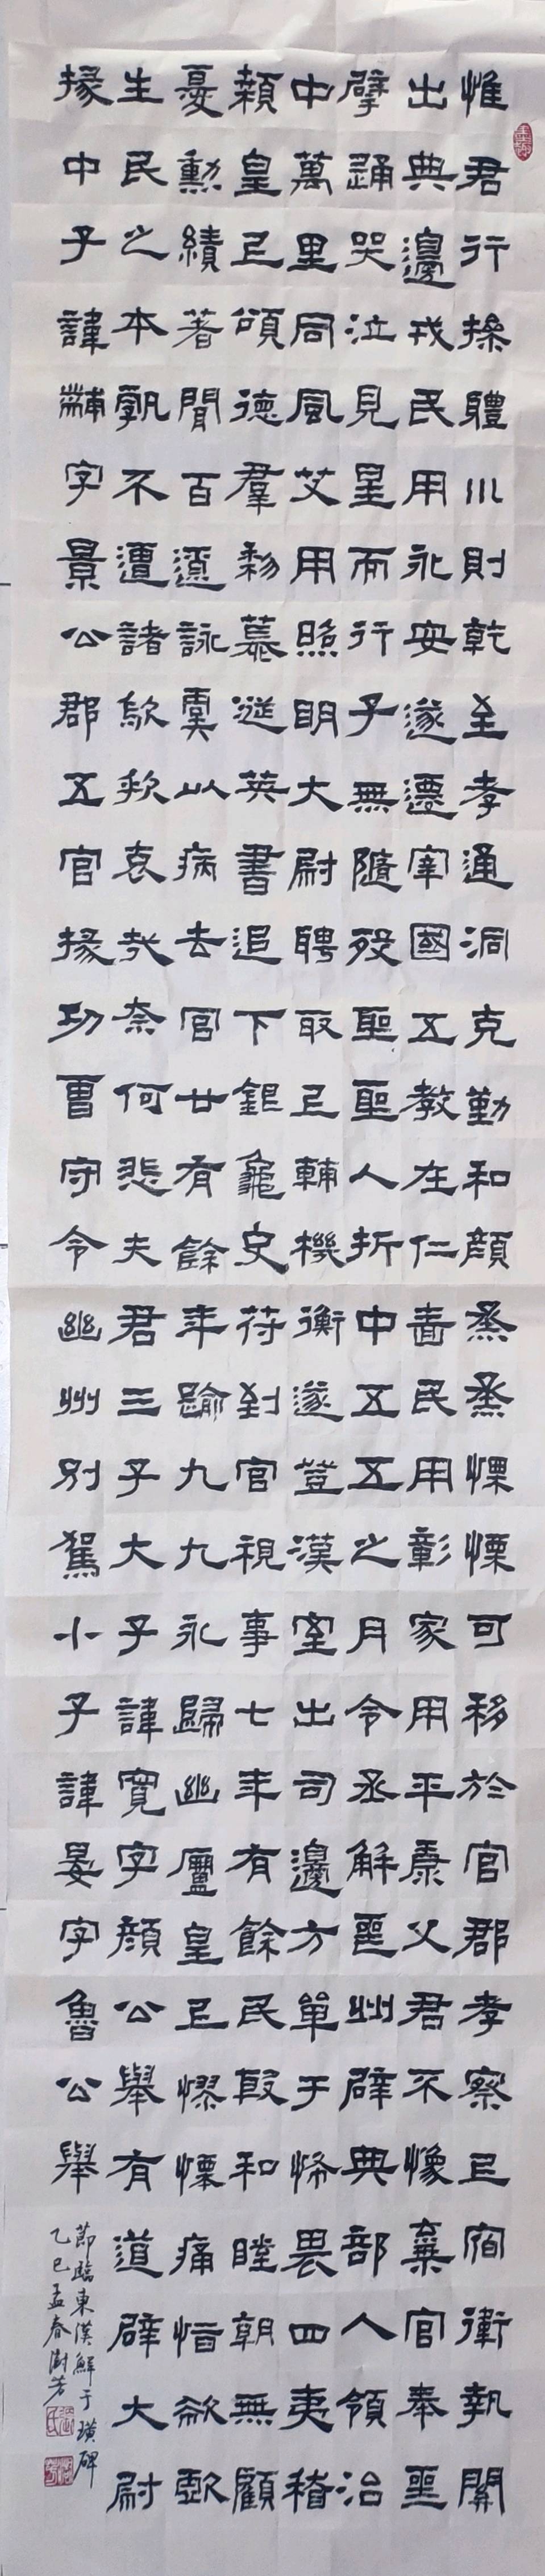 惟君行操體川則乾至孝通洞克勤和顏烝烝慄慄可移於官郡孝察已宿衛執關
出典邊戎民用永安遂遷宰國五教在仁嗇民用彰家用平康父君不像棄官奉喪
擗踊哭泣見星而行子無隨歿聖聖人折中五五之月令丞解喪州辟典部人領治
中萬里同風艾用照明大尉聘取已輔機衡遂登漢室出司邊方單于怖畏四夷稽
顙皇已頌德羣黎慕涎英書追下銀龜史符到官視事七年有餘民殷和睦朝無顧
憂勳績著聞百遼詠虞以病去官廿有餘年踰九九永歸幽廬皇已憀慄痛惜欷歔
生民之本孰不遭諸欷歔哀哉奈何悲夫君三子大子諱寬字顏公舉有道辟大尉
掾中子諱黼字景公郡五官掾功曹守令幽州別駕小子諱晏字魯公舉
節臨東漢鮮于璜碑
乙巳孟春澍芳